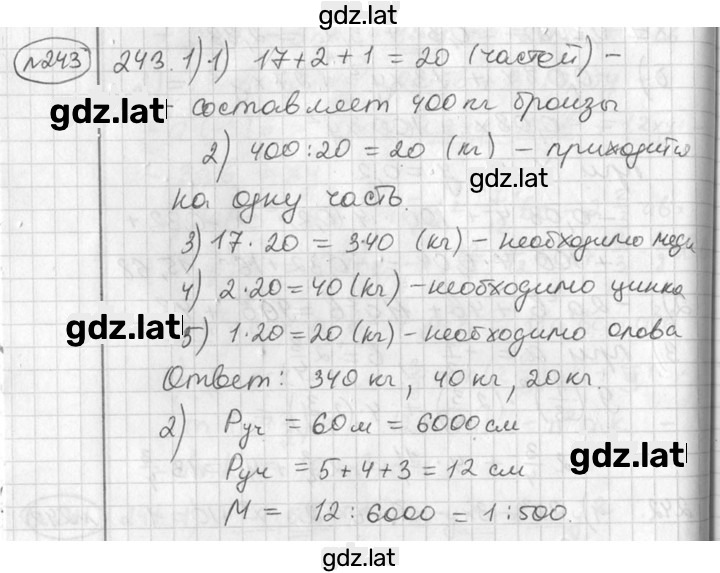 gdz.lat
№243 243. 1) 1) 17+2+1 = 20 (частей) -
gdz.lat составляет 400 кг бронзы
2) 400:20 = 20 (кг) - приходится
gdz.lat
на одну часть.
3) 17·20 = 3·40 (кг) - необходимо меди
4) 2·20 = 40 (кг) - необходимо цинка
gdz.lat 5) 1·20 = 20 (кг) - необходимо олова
Ответ: 340 кг, 40 кг, 20 кг.
2) Pуч = 60 м = 6000 см
gdz.lat
Pуч = 5+4+3 = 12 см
М = 12 : 6000 = 1 : 500.
gdz.lat